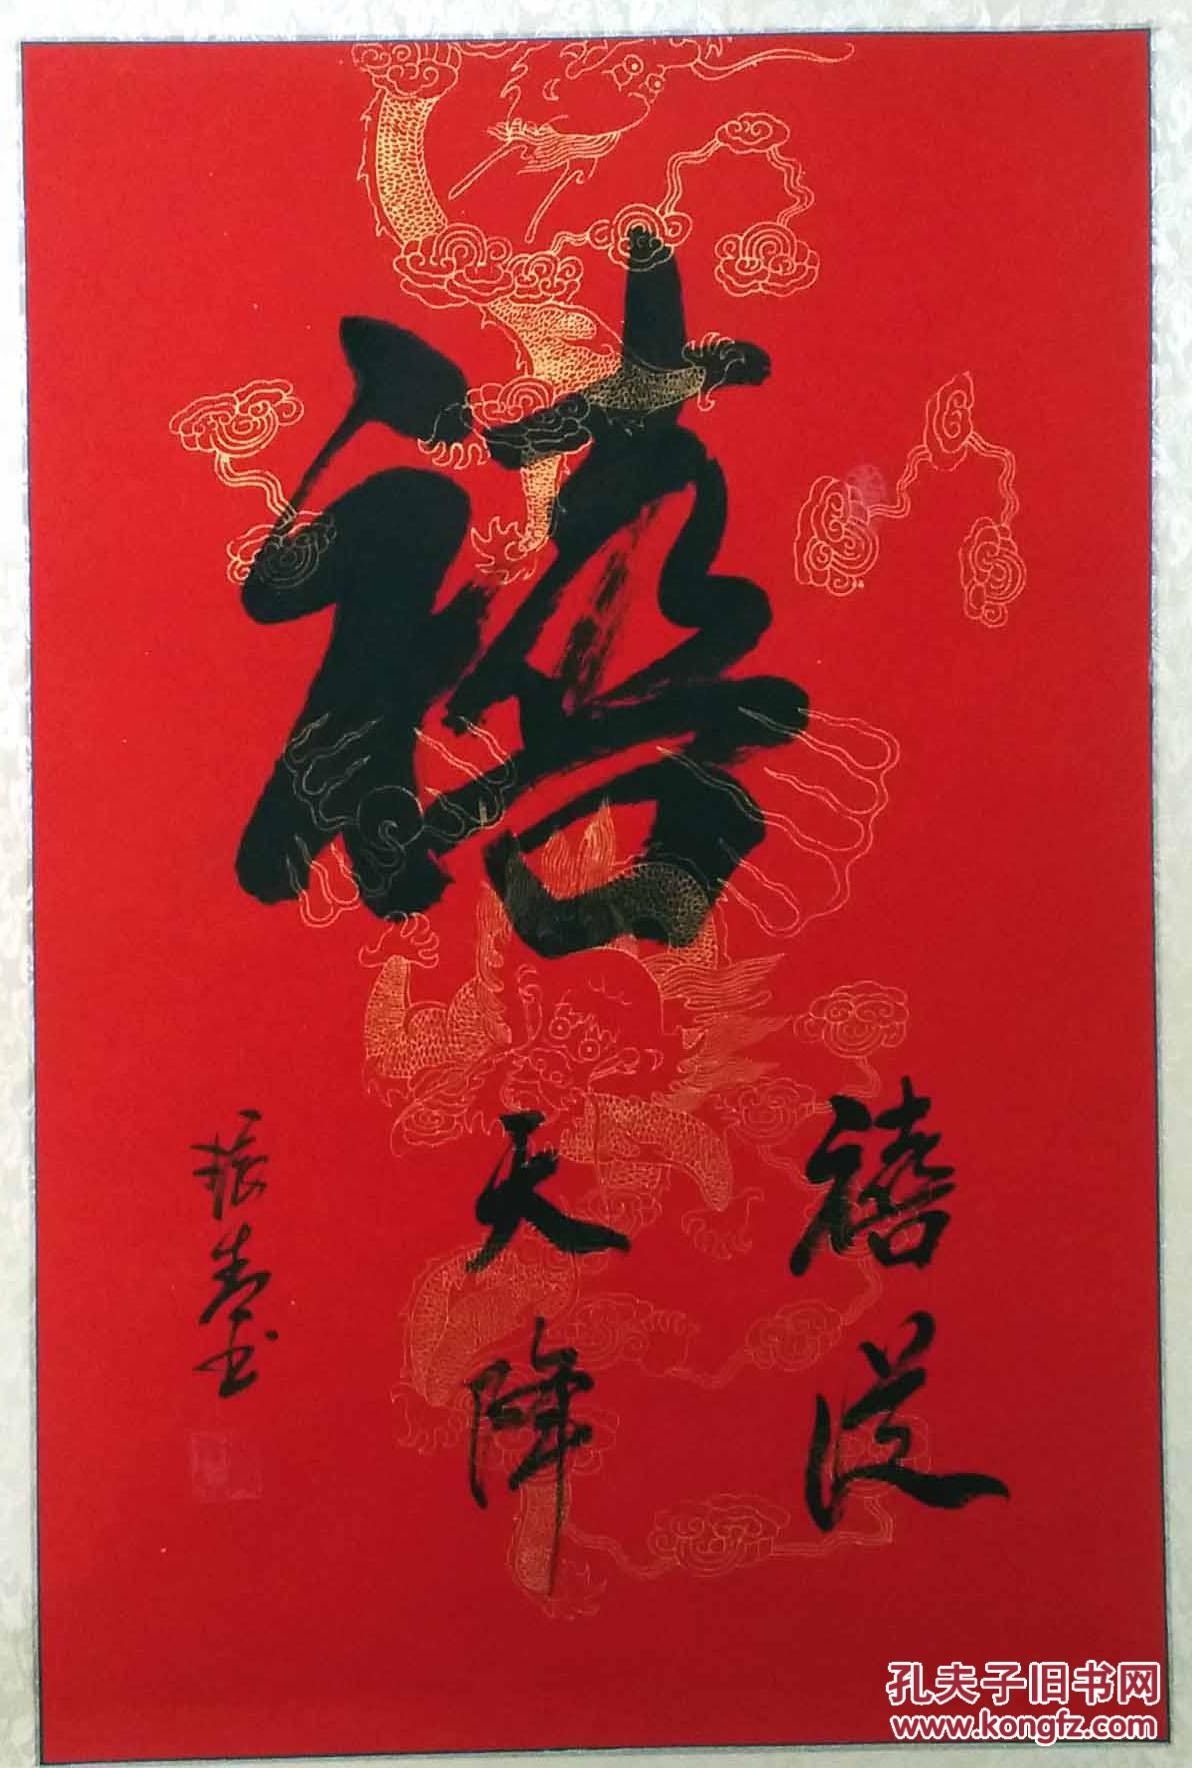 禧
禧从
天降
振寿书
孔夫子旧书网
www.kongfz.com